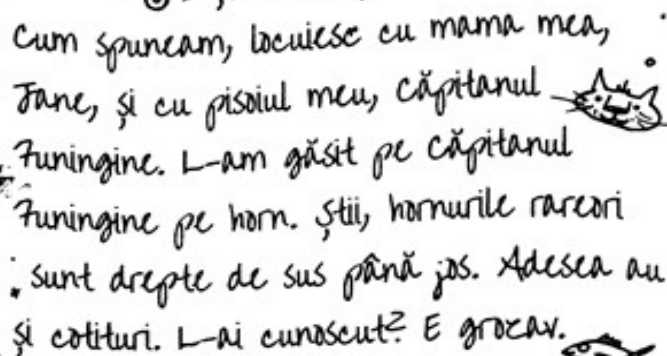 Cum spuneam, locuiesc cu mama mea,
Jane, și cu pisoiul meu, Căpitanul
Funingine. L-am găsit pe Căpitanul
Funingine pe horn. Știi, hornurile rareori
sunt drepte de sus până jos. Adesea au
și cotituri. L-ai cunoscut? E grozav.